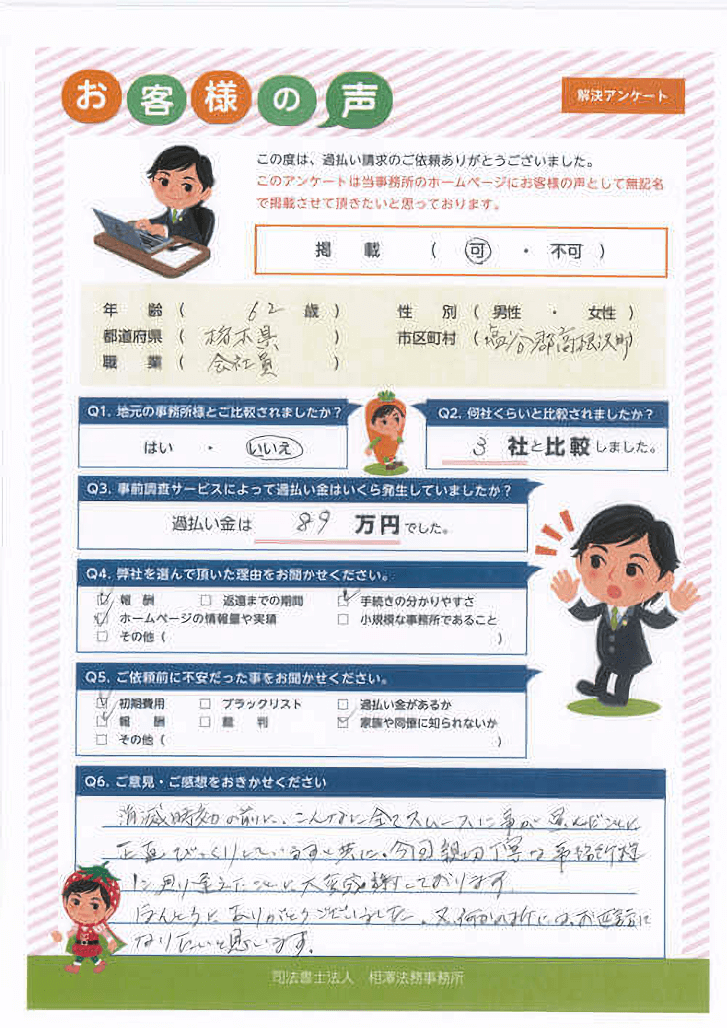 お客様の声
解決アンケート
この度は、過払い請求のご依頼ありがとうございました。
このアンケートは当事務所のホームページにお客様の声として無記名
で掲載させて頂きたいと思っております。
掲 載 ( 可 ・ 不可 )
年 齢 ( 62 歳 ) 性 別 ( 男性 ・ 女性 )
都道府県 ( 栃木県 ) 市区町村 ( 塩谷郡高根沢町 )
職 業 ( 会社員 )
Q1. 地元の事務所様とご比較されましたか?
はい ・ いいえ
Q2. 何社くらいと比較されましたか?
3 社と比較しました。
Q3. 事前調査サービスによって過払い金はいくら発生していましたか?
過払い金は 89 万円でした。
Q4. 弊社を選んで頂いた理由をお聞かせください。
☑ 報 酬 □ 返還までの期間 ☑ 手続きの分かりやすさ
☑ ホームページの情報量や実績 □ 小規模な事務所であること
□ その他 ( )
Q5. ご依頼前に不安だった事をお聞かせください。
☑ 初期費用 □ ブラックリスト □ 過払い金があるか
☑ 報 酬 □ 裁 判 ☑ 家族や同僚に知られないか
□ その他 ( )
Q6. ご意見・ご感想をおきかせください
消滅時効の前に、こんなに全てスムースに事が運んだことに
正直びっくりしていますと共に、今回親切丁寧な事務所様
に巡り逢えたことに大変感謝しております。
ほんとうにありがとうございました。又、何かの折には、お世話に
なりたいと思います。
司法書士法人 相澤法務事務所